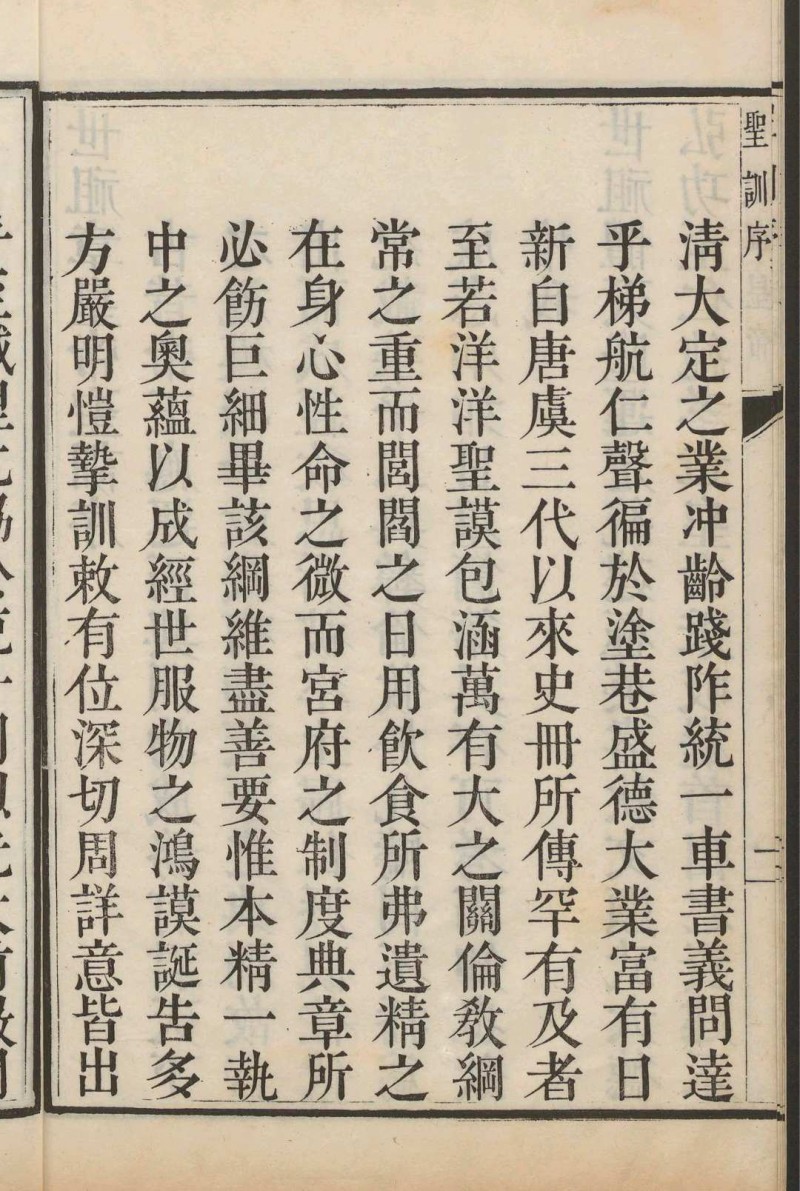 聖訓序
二
淸大定之業冲齡踐阼統一車書義問達
乎梯航仁聲徧於塗巷盛德大業富有日
新自唐虞三代以來史冊所傳罕有及者
至若洋洋聖謨包涵萬有大之關倫敎綱
常之重而閭閻之日用飮食所弗遺精之
在身心性命之微而宮府之制度典章所
必飭巨細畢該綱維盡善要惟本精一執
中之奧蘊以成經世服物之鴻謨誕告多
方嚴明愷摯訓敕有位深切周詳意皆出